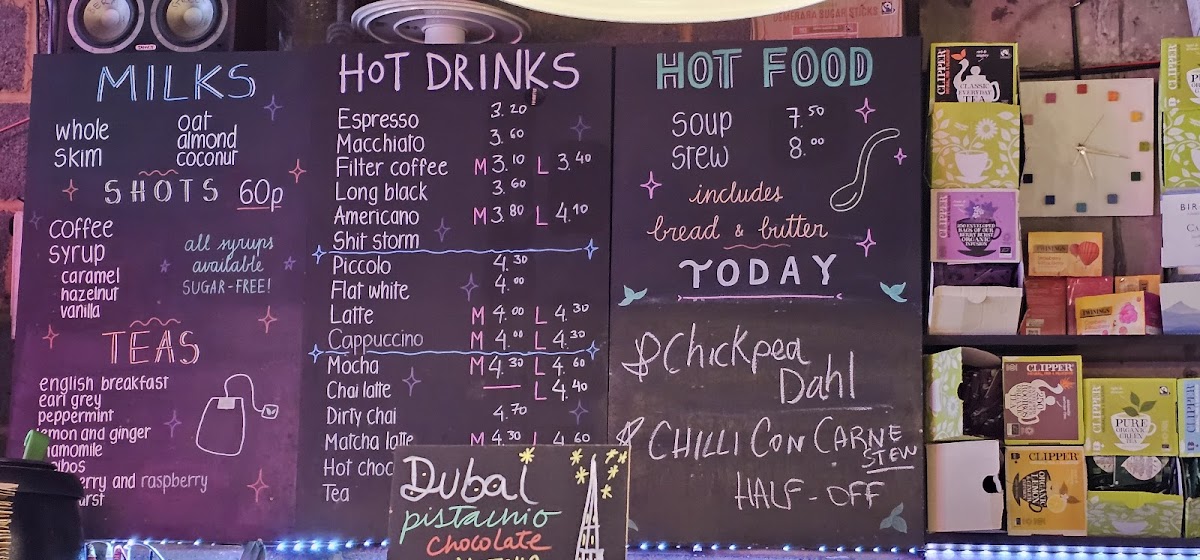 MILKS
whole
skim
oat
almond
coconut
SHOTS 60p
coffee
syrup
caramel
hazelnut
vanilla
all syrups
available
SUGAR-FREE!
TEAS
english breakfast
earl grey
peppermint
lemon and ginger
and raspberry
HOT DRINKS
Espresso 3.20
Macchiato 3.60
Filter coffee M 3.10 L 3.40
Long black 3.60
Americano M 3.80 L 4.10
Shit storm
Piccolo 4.30
Flat white 4.00
Latte M 4.00 L 4.30
Cappuccino M 4.00 L 4.30
Mocha M 4.30 L 4.60
Chai latte — L 4.40
Dirty chai 4.70
Matcha latte M 4.30 L 4.60
Hot choc
Tea
Dubai
pistachio
chocolate
HOT FOOD
soup 7.50
stew 8.00
includes
bread & butter
TODAY
Chickpea
Dahl
CHILLI CON CARNE
STEW
HALF-OFF
DEMERARA SUGAR STICKS
CLIPPER
CLASSIC
EVERYDAY
TEA
CLIPPER
ORGANIC
INFUSION
TWININGS
TWININGS
CLIPPER
CLIPPER
PURE
ORGANIC
GREEN TEA
CLIPPER
ORGANIC
LEMON